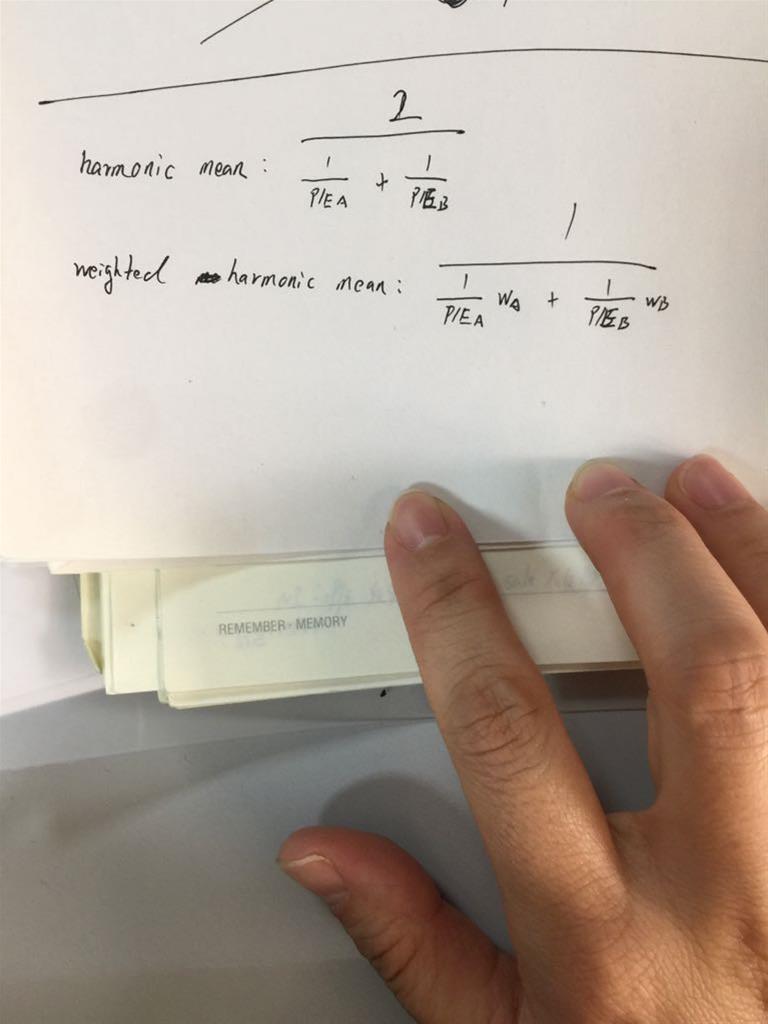 2
harmonic mean: 1/P/E A + 1/P/E B
1
weighted harmonic mean: 1/P/E A WA + 1/P/E B WB
REMEMBER · MEMORY